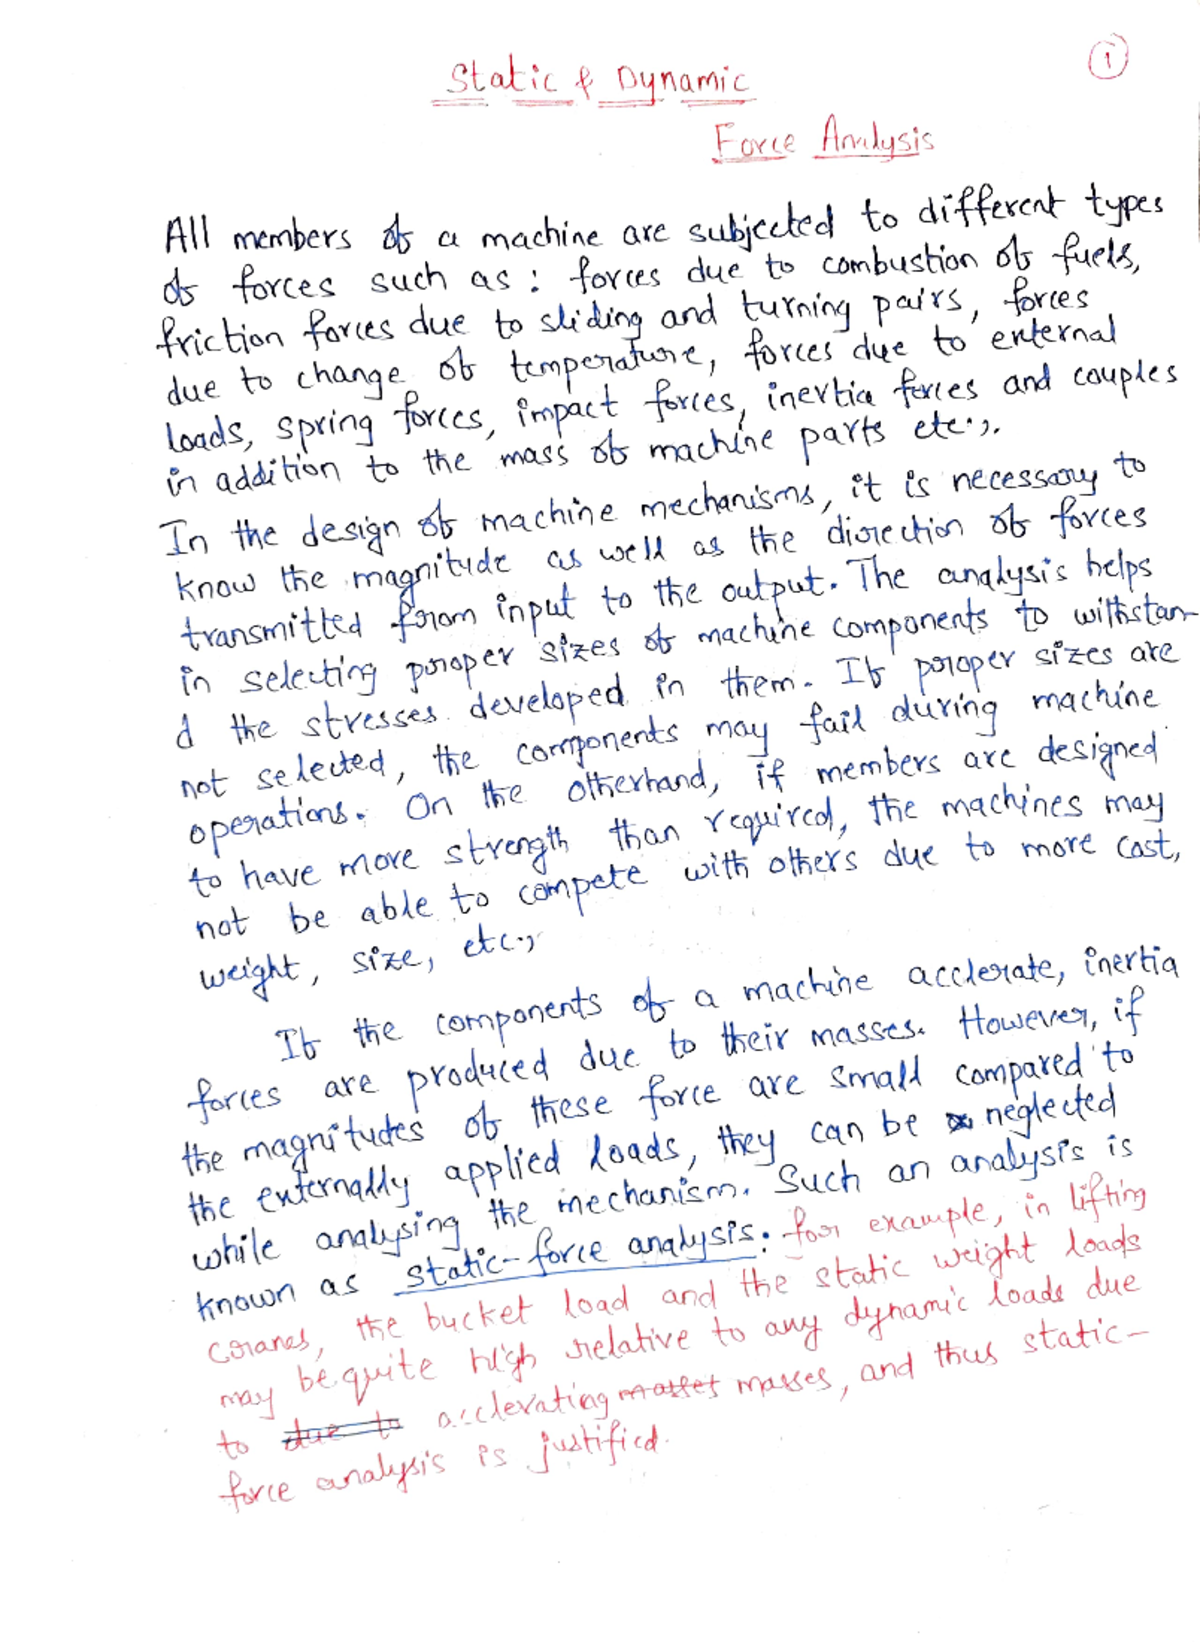 1
Static & Dynamic
Force Analysis
All members of a machine are subjected to different types
of forces such as : forces due to combustion of fuels,
friction forces due to sliding and turning pairs, forces
due to change of temperature, forces due to external
loads, spring forces, impact forces, inertia forces and couples
in addition to the mass of machine parts etc.,.
In the design of machine mechanisms, it is necessary to
know the magnitude as well as the direction of forces
transmitted from input to the output. The analysis helps
in selecting proper sizes of machine components to withstan-
d the stresses developed in them. If proper sizes are
not selected, the components may fail during machine
operations. On the otherhand, if members are designed
to have more strength than required, the machines may
not be able to compete with others due to more cost,
weight, size, etc.,
If the components of a machine acclerate, inertia
forces are produced due to their masses. However, if
the magnitudes of these force are small compared to
the externally applied loads, they can be neglected
while analysing the mechanism. Such an analysis is
known as static-force analysis. for example, in lifting
cranes, the bucket load and the static weight loads
may be quite high relative to any dynamic loads due
to due to acclerating masses, and thus static-
force analysis is justified.